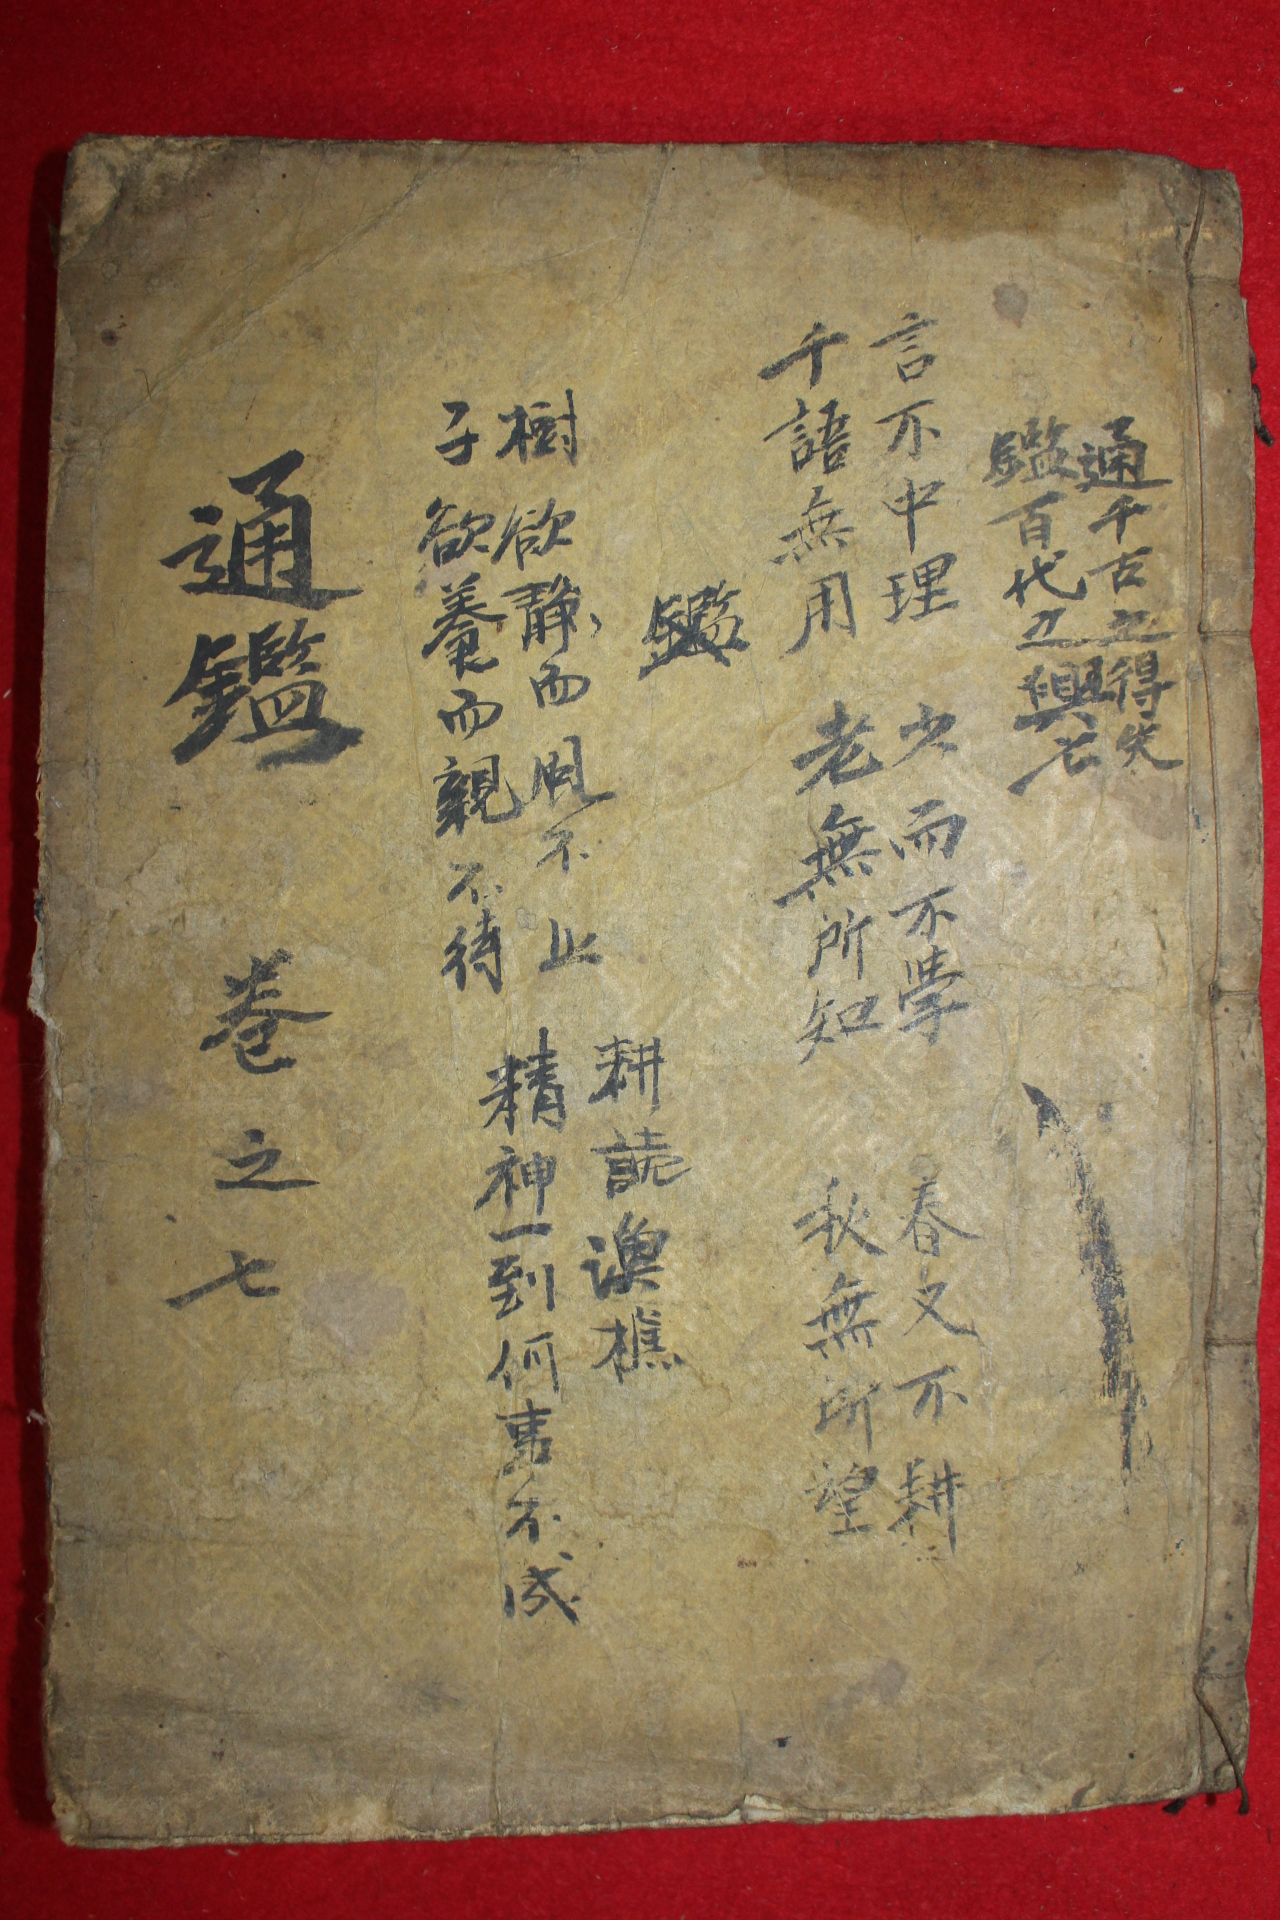 通千古之得失
鑑百代之興亡
言不中理
千語無用
少而不學
老無所知
春又不耕
秋無所望
鑑
樹欲靜而風不止
子欲養而親不待
耕讀漁樵
精神一到何事不成
通鑑 卷之七